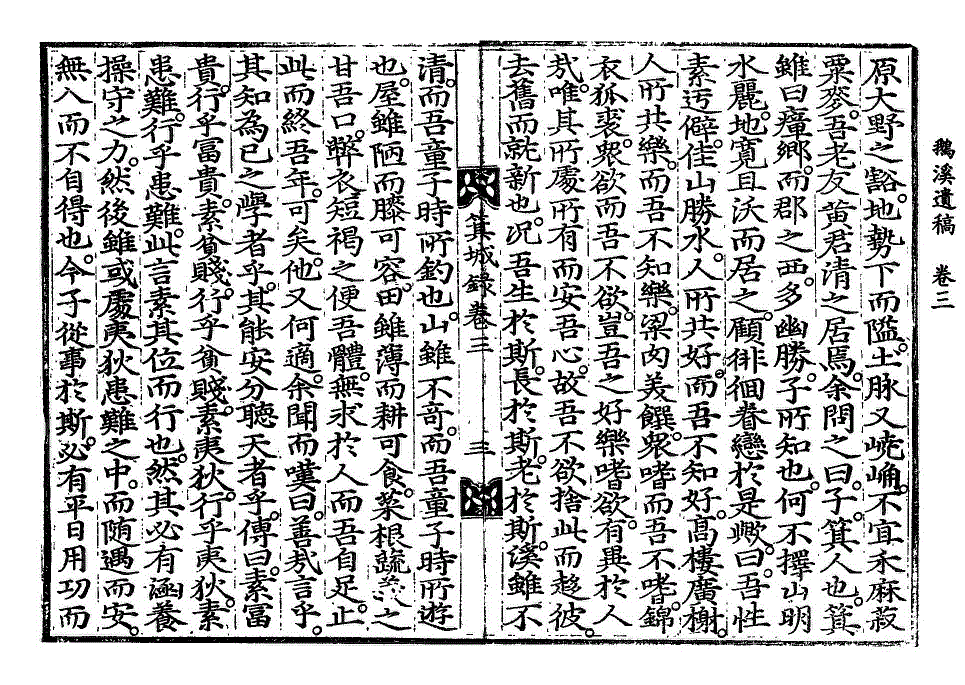 鵝溪遺稿 卷三
原大野之豁。地勢下而隘。土脉又嶢崅。不宜禾麻菽
粟麥。吾老友黄君清之居焉。余問之曰。子。箕人也。箕
雖曰瘴鄉。而郡之西。多幽勝。子所知也。何不擇山明
水麗。地寬且沃而居之。顧徘徊眷戀於是歟。曰。吾性
素迃僻。佳山勝水。人所共好。而吾不知好。高樓廣榭。
人所共樂。而吾不知樂。梁肉美饌。衆嗜而吾不嗜。錦
衣狐裘。衆欲而吾不欲。豈吾之好樂嗜欲。有異於人
㢤。唯其所處所有而安吾心。故吾不欲捨此而趍彼。
去舊而就新也。况吾生於斯。長於斯。老於斯。溪雖不
箕城錄卷三 三
清。而吾童子時所釣也。山雖不竒。而吾童子時所遊
也。屋雖陋而膝可容。田雖薄而耕可食。菜根蔬之
甘吾口。弊衣短褐之便吾體。無求於人而吾自足。止
此而終吾年。可矣。他又何適。余聞而嘆曰。善㢤言乎。
其知為己之學者乎。其能安分聽天者乎。傳曰。素富
貴。行乎富貴。素貧賤。行乎貧賤。素夷狄。行乎夷狄。素
患難。行乎患難。此言素其位而行也。然其必有涵養
操守之力。然後雖或處夷狄患難之中。而随遇而安。
無入而不自得也。今子從事於斯。必有平日用功而